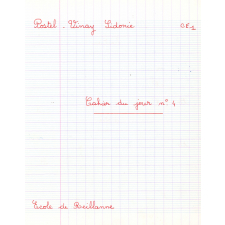 Postel - Vinay Sidonie CE1
Cahier du jour n° 4
Ecole de Reillanne